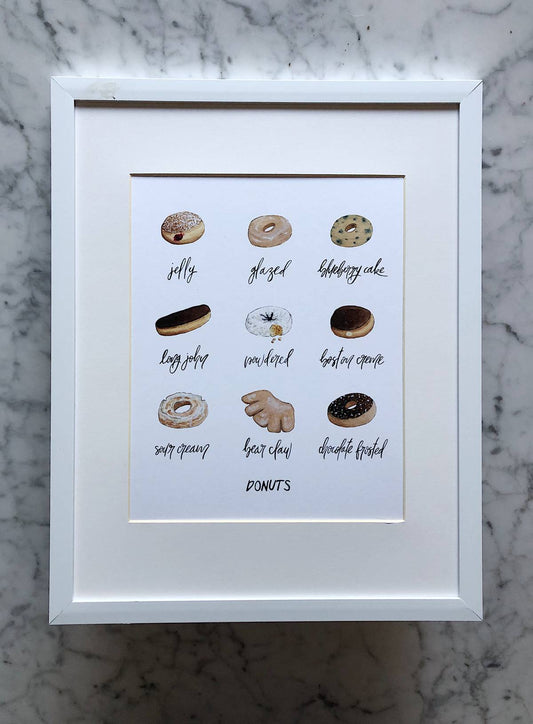 jelly glazed blueberry cake
long john powdered boston creme
sour cream bear claw chocolate frosted
DONUTS